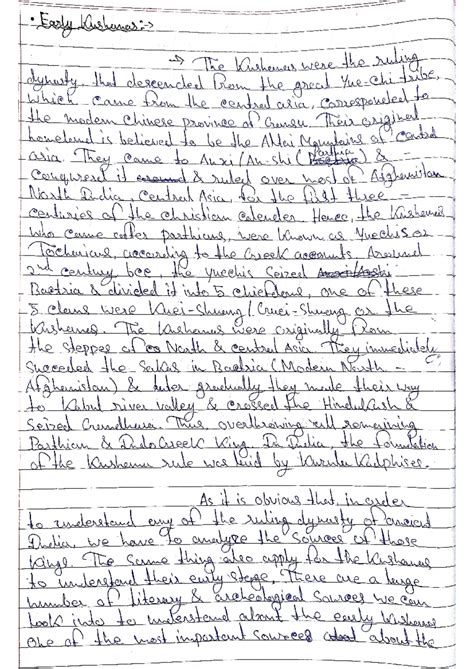 • Early Kushanas:->
-> The Kushanas were the ruling
dynasty, that descended from the great Yue-chi tribe,
which came from the central asia, corresponded to
the modern Chinese province of Gansu. Their original
homeland is believed to be the Altai Mountains of central
asia. They came to Anxi/An-shi (Parthia) &
conquered it & ruled over most of Afghanistan
North India, Central Asia, for the first three
centuries of the christian calender. Hence, the Kushanas,
who came after parthians, were known as Yuechis or
Tocharians, according to the Greek accounts. Around
2nd century bce, the yuechis seized
Bactria & divided it into 5 chiefdoms, one of these
5 clans were Kuei-shuang/Guei-Shuang or the
Kushanas. The Kushanas were originally from
the steppes of North & central Asia. They immediately
succeeded the Sakas in Bactria (Modern North -
Afghanistan) & later gradually they made their way
to Kabul river valley & crossed the Hindukush &
seized Gandhara. Thus overthrowing all remaining
Parthian & IndoGreek King. In India, the foundation
of the Kushana rule was laid by Kujula Kadphises.
As it is obvious that, in order
to understand any of the ruling dynasty of ancient
India, we have to analyze the sources of those
kings. The same thing also apply for the Kushanas
to understand their early stage. There are a large
number of literary & archeological sources we can
look into to understand about the early Kushanas
One of the most important sources about the